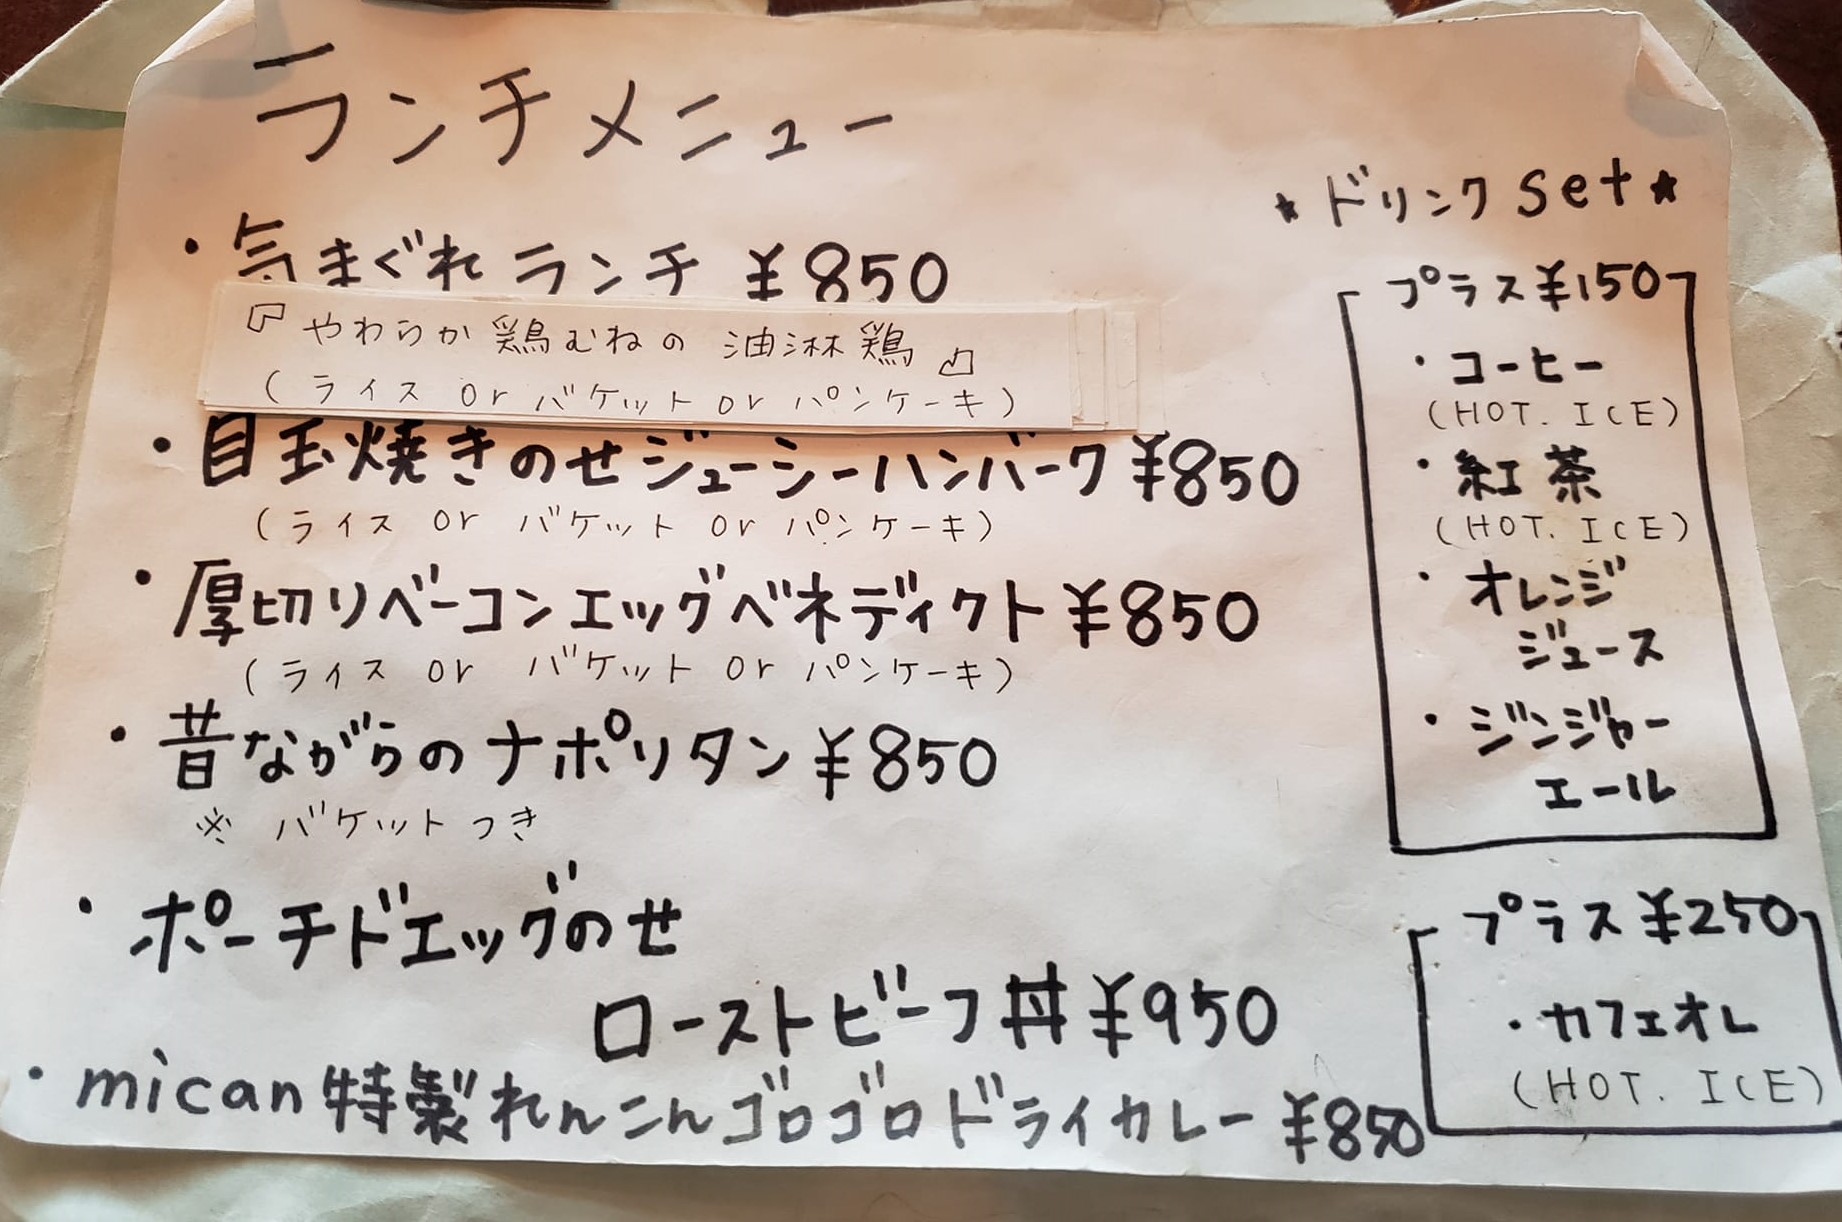 ランチメニュー
・気まぐれランチ ¥850
『やわらか鶏むねの 油淋鶏』
(ライス or バケット or パンケーキ)
・目玉焼きのせジューシーハンバーグ ¥850
(ライス or バケット or パンケーキ)
・厚切りベーコンエッグベネディクト ¥850
(ライス or バケット or パンケーキ)
・昔ながらのナポリタン ¥850
※ バケットつき
・ポーチドエッグのせ
ローストビーフ丼 ¥950
・mican特製れんこんゴロゴロドライカレー ¥850
★ドリンクset★
プラス¥150
・コーヒー
(HOT. ICE)
・紅茶
(HOT. ICE)
・オレンジ
ジュース
・ジンジャー
エール
プラス¥250
・カフェオレ
(HOT. ICE)